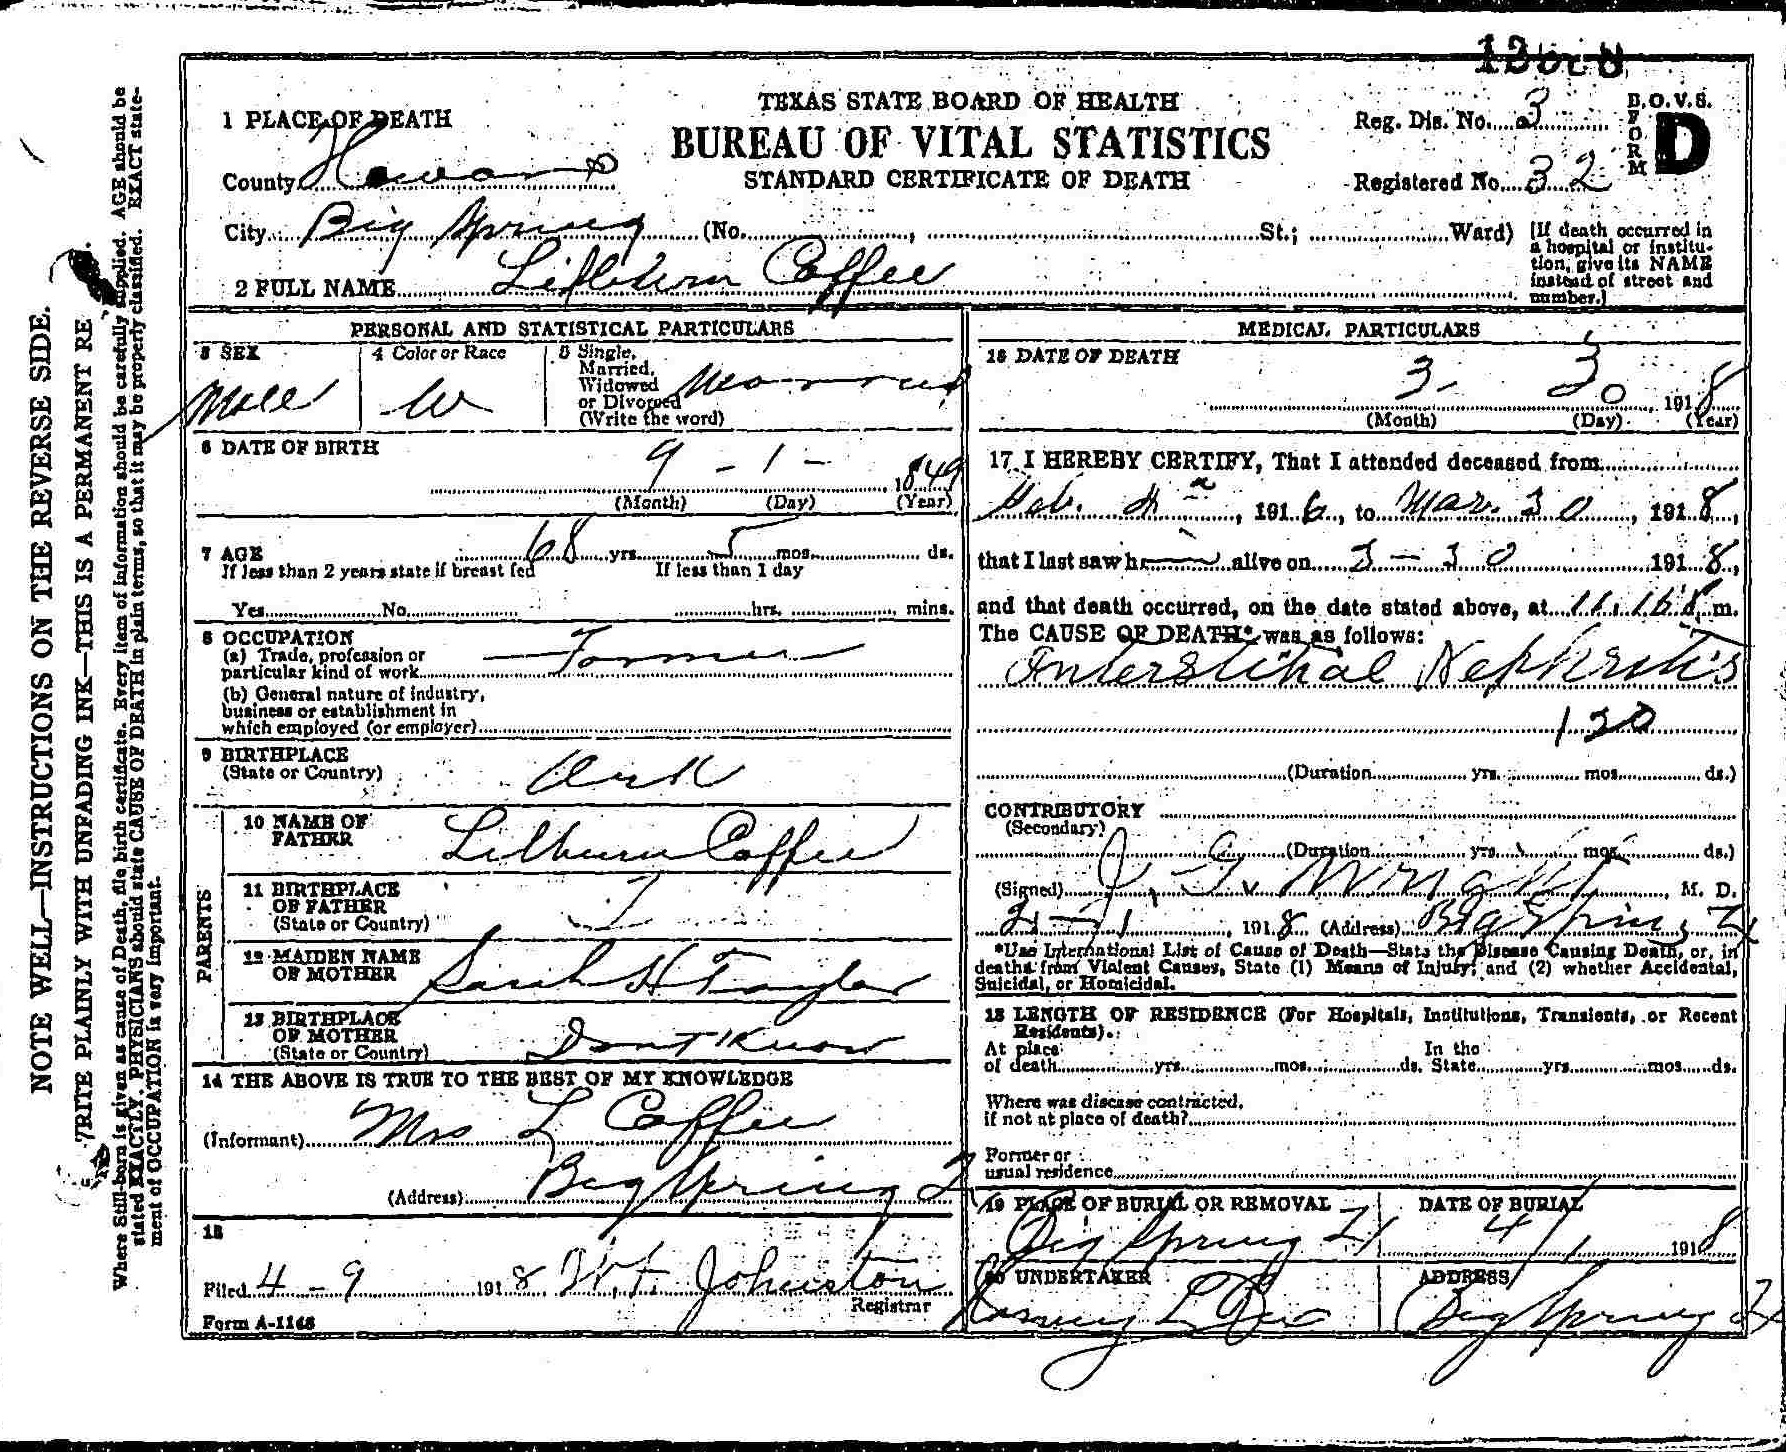 1 PLACE OF DEATH
TEXAS STATE BOARD OF HEALTH
BUREAU OF VITAL STATISTICS
STANDARD CERTIFICATE OF DEATH
Reg. Dis. No. 3
Registered No. 32
B.O.V.S.
FORM D
County Howard
City Big Spring (No. , St.; Ward)
[If death occurred in
a hospital or institu-
tion, give its NAME
instead of street and
number.]
2 FULL NAME Lilburn Coffee
PERSONAL AND STATISTICAL PARTICULARS
3 SEX
Male
4 Color or Race
W
5 Single,
Married,
Widowed
or Divorced
(Write the word)
Married
6 DATE OF BIRTH
9 - 1 - 1849
(Month) (Day) (Year)
7 AGE 68 yrs. 5 mos. ds.
If less than 2 years state if breast fed If less than 1 day
Yes No hrs. , mins.
8 OCCUPATION
(a) Trade, profession or
particular kind of work Farmer
(b) General nature of industry,
business or establishment in
which employed (or employer)
9 BIRTHPLACE
(State or Country) Ark
PARENTS
10 NAME OF
FATHER Lilburn Coffee
11 BIRTHPLACE
OF FATHER
(State or Country)
12 MAIDEN NAME
OF MOTHER Sarah H Taylor
13 BIRTHPLACE
OF MOTHER
(State or Country) Dont Know
14 THE ABOVE IS TRUE TO THE BEST OF MY KNOWLEDGE
(Informant) Mrs L Coffee
(Address) Big Spring
15
Filed 4 - 9 1918 W.H. Johnston
Registrar
Form A-1145
MEDICAL PARTICULARS
16 DATE OF DEATH
3 - 30 1918
(Month) (Day) (Year)
17 I HEREBY CERTIFY, That I attended deceased from
Feb. , 1916, to Mar. 30, 1918,
that I last saw h alive on 3 - 30 1918,
and that death occurred, on the date stated above, at m.
The CAUSE OF DEATH* was as follows:
Interstitial Nephritis
120
(Duration yrs. mos. ds.)
CONTRIBUTORY
(Secondary)
(Duration yrs. mos. ds.)
(Signed) J. G. Wright, M. D.
, 1918 (Address) Big Spring Tx
*Use International List of Cause of Death—State the Disease Causing Death, or, in
deaths from Violent Causes, State (1) Means of Injury; and (2) whether Accidental,
Suicidal, or Homicidal.
18 LENGTH OF RESIDENCE (For Hospitals, Institutions, Transients, or Recent
Residents).
At place In the
of death yrs. mos. ds. State yrs. mos. ds.
Where was disease contracted,
if not at place of death?
Former or
usual residence
19 PLACE OF BURIAL OR REMOVAL
Big Spring
DATE OF BURIAL
4/1 1918
20 UNDERTAKER
ADDRESS
Big Spring Tx
NOTE WELL—INSTRUCTIONS ON THE REVERSE SIDE.
WRITE PLAINLY WITH UNFADING INK—THIS IS A PERMANENT RE
Where Still-born is given as cause of Death, file birth certificate. Every item of information should be carefully supplied. AGE should be
stated EXACTLY. PHYSICIANS should state CAUSE OF DEATH in plain terms, so that it may be properly classified. EXACT state-
ment of OCCUPATION is very important.